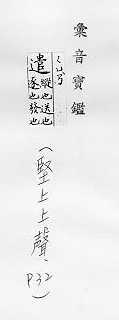 彙音寶鑑
遣
縱也送也
逐也發也
(堅上上聲、
P32)